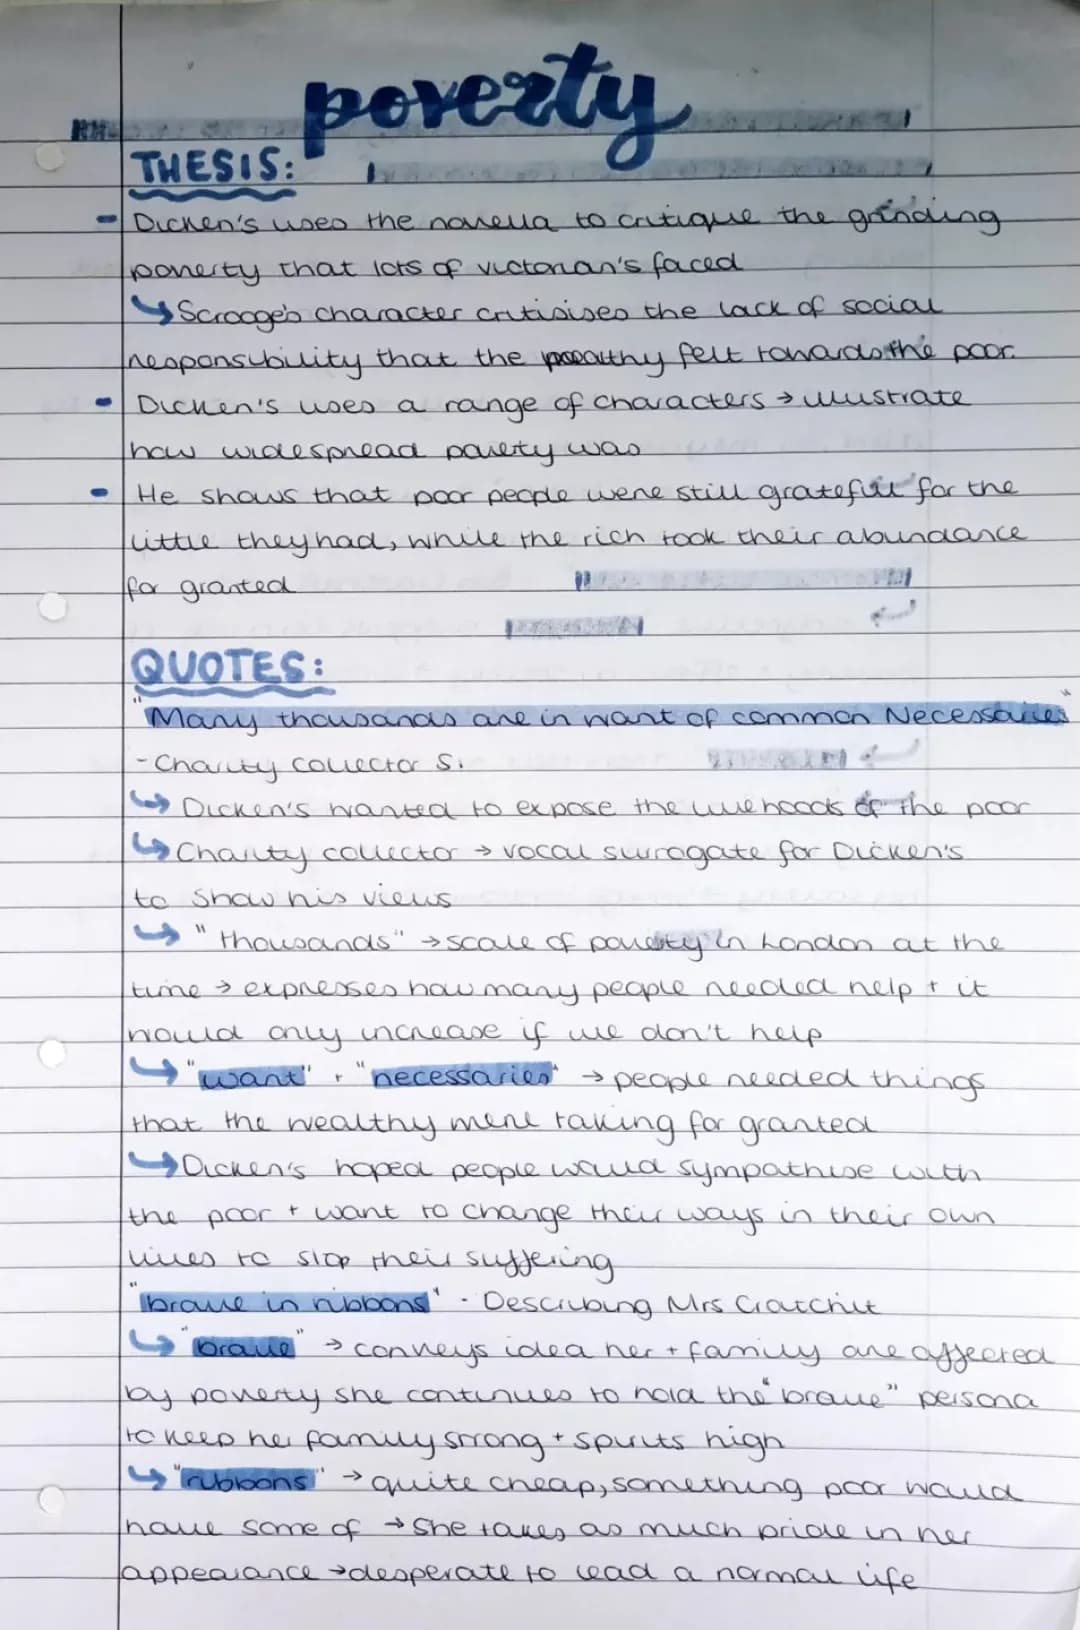 poverty
THESIS:
- Dicken's uses the novella to critique the grinding
poverty that lots of victorian's faced
↳ Scrooge's character critisises the lack of social
responsibility that the wealthy felt towards the poor.
- Dicken's uses a range of characters → illustrate
how widespread poverty was
- He shows that poor people were still gratefull for the
little they had, while the rich took their abundance
for granted
QUOTES:
"Many thousands are in want of common Necessaries"
- Charity collector S.
↳ Dicken's wanted to expose the livehoods of the poor
↳ Charity collector → vocal surrogate for Dicken's
to show his views
↳ "thousands" → scale of poverty in London at the
time → expresses how many people needed help + it
would only increase if we don't help
↳ "want" + "necessaries" → people needed things
that the wealthy were taking for granted
↳ Dicken's hoped people would sympathise with
the poor + want to change their ways in their own
lives to stop their suffering
"brave in ribbons" - Describing Mrs Cratchit
↳ "brave" → conveys idea her + family are affected
by poverty she continues to hold the "brave" persona
to keep her family strong + spirits high
↳ "ribbons" → quite cheap, something poor would
have some of → She takes as much pride in her
appearance → desperate to lead a normal life